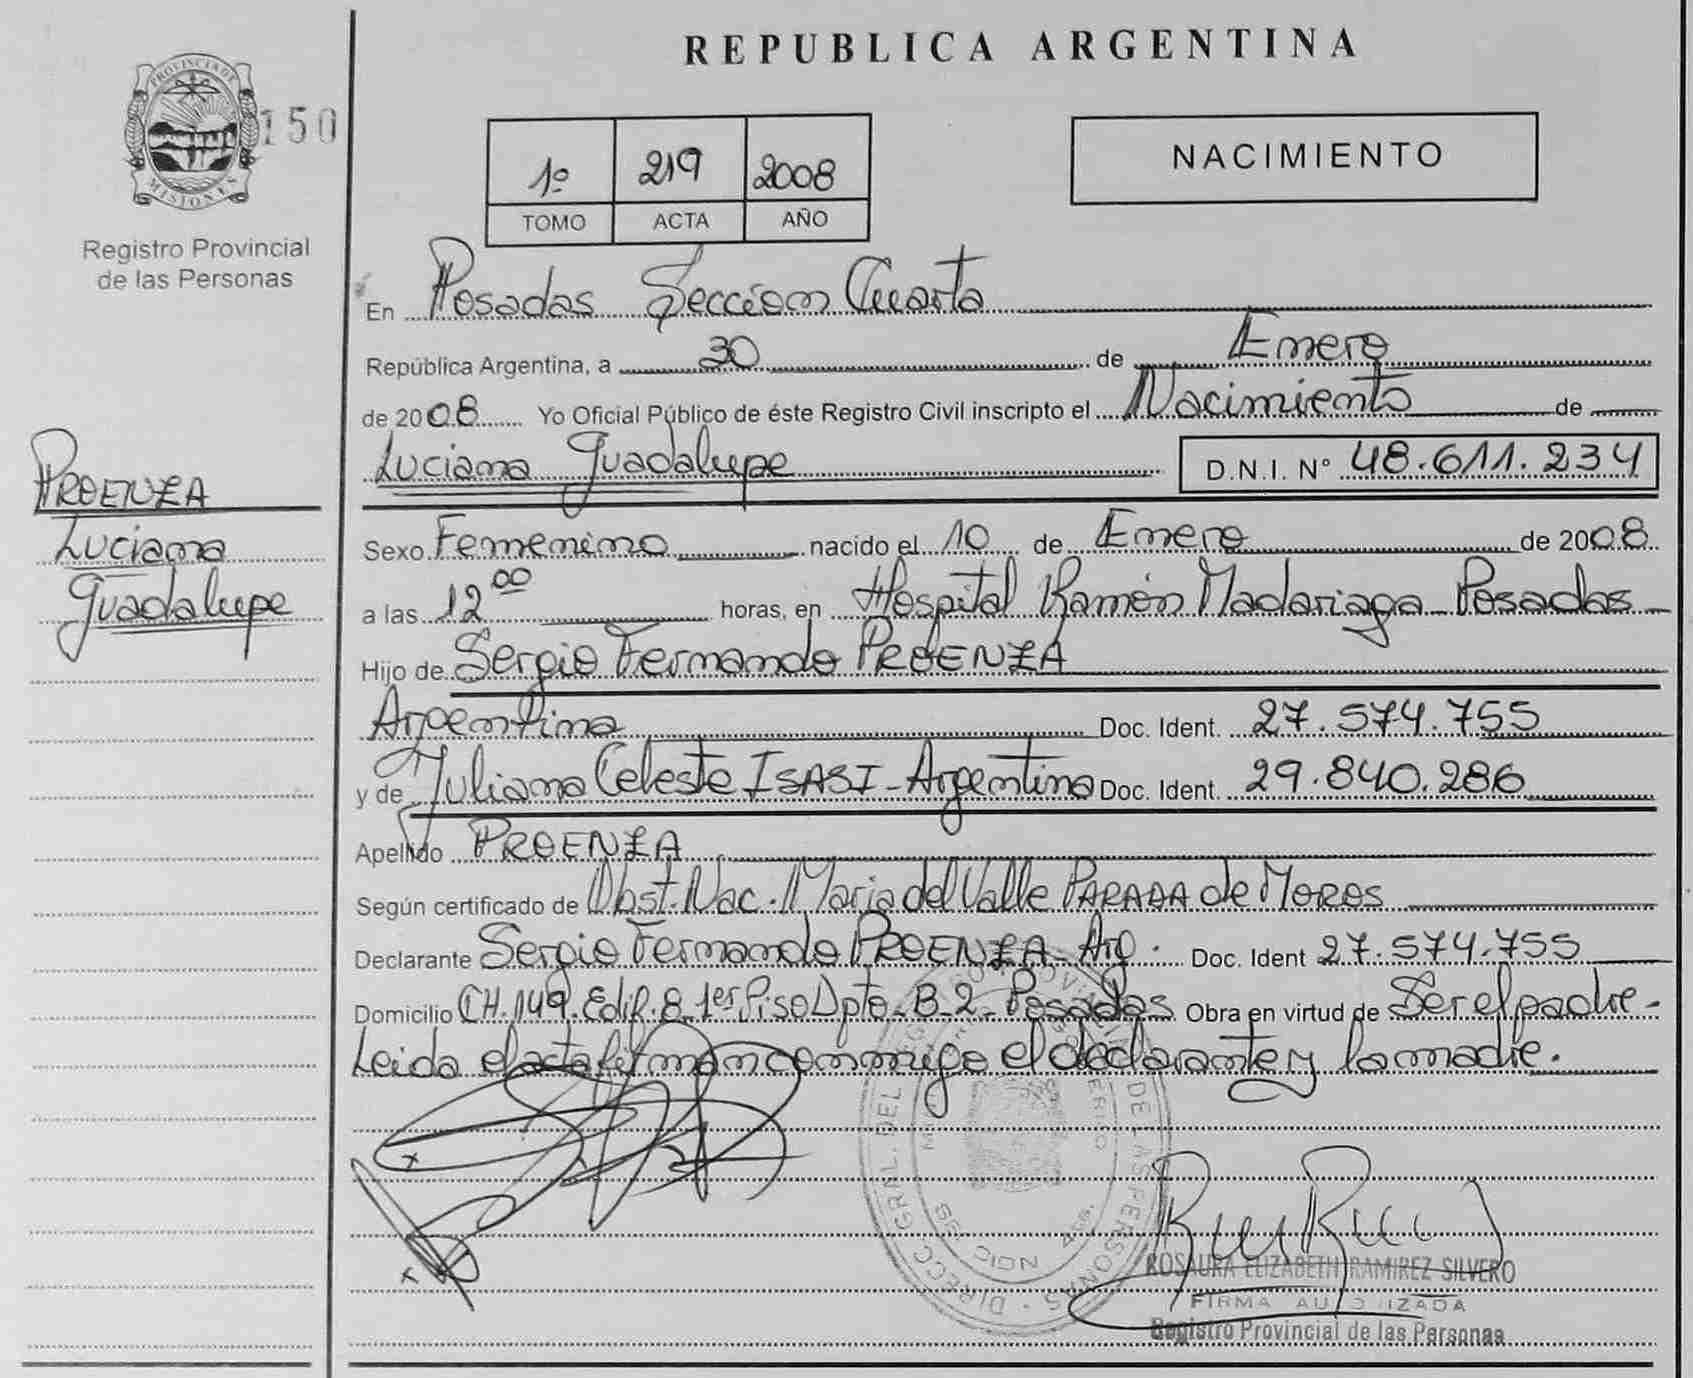 REPUBLICA ARGENTINA
PROVINCIA DE
MISIONES
150
Registro Provincial
de las Personas
1º 219 2008
TOMO ACTA AÑO
NACIMIENTO
En Posadas Sección Cuarta
República Argentina, a 30 de Enero
de 2008 Yo Oficial Público de éste Registro Civil inscripto el Nacimiento de
Luciana Guadalupe D.N.I. Nº 48.611.234
PROENZA
Luciana
Guadalupe
Sexo Femenino nacido el 10 de Enero de 2008
a las 12 00 horas, en Hospital Ramón Madariaga Posadas
Hijo de Sergio Fernando PROENZA
Argentino Doc. Ident. 27.574.755
y de Juliana Celeste ISASI - Argentina Doc. Ident. 29.840.286
Apellido PROENZA
Según certificado de Obst. Nac. Maria del Valle PARADA de MOROS
Declarante Sergio Fernando PROENZA - Arg. Doc. Ident 27.574.755
Domicilio CH. 149. Edif. 8 1er Piso Dpto - B-2 - Posadas Obra en virtud de Ser el padre -
Leida el acta firman conmigo el declarante y la madre.
ROSAURA ELIZABETH RAMIREZ SILVERO
FIRMA AUTORIZADA
Registro Provincial de las Personas